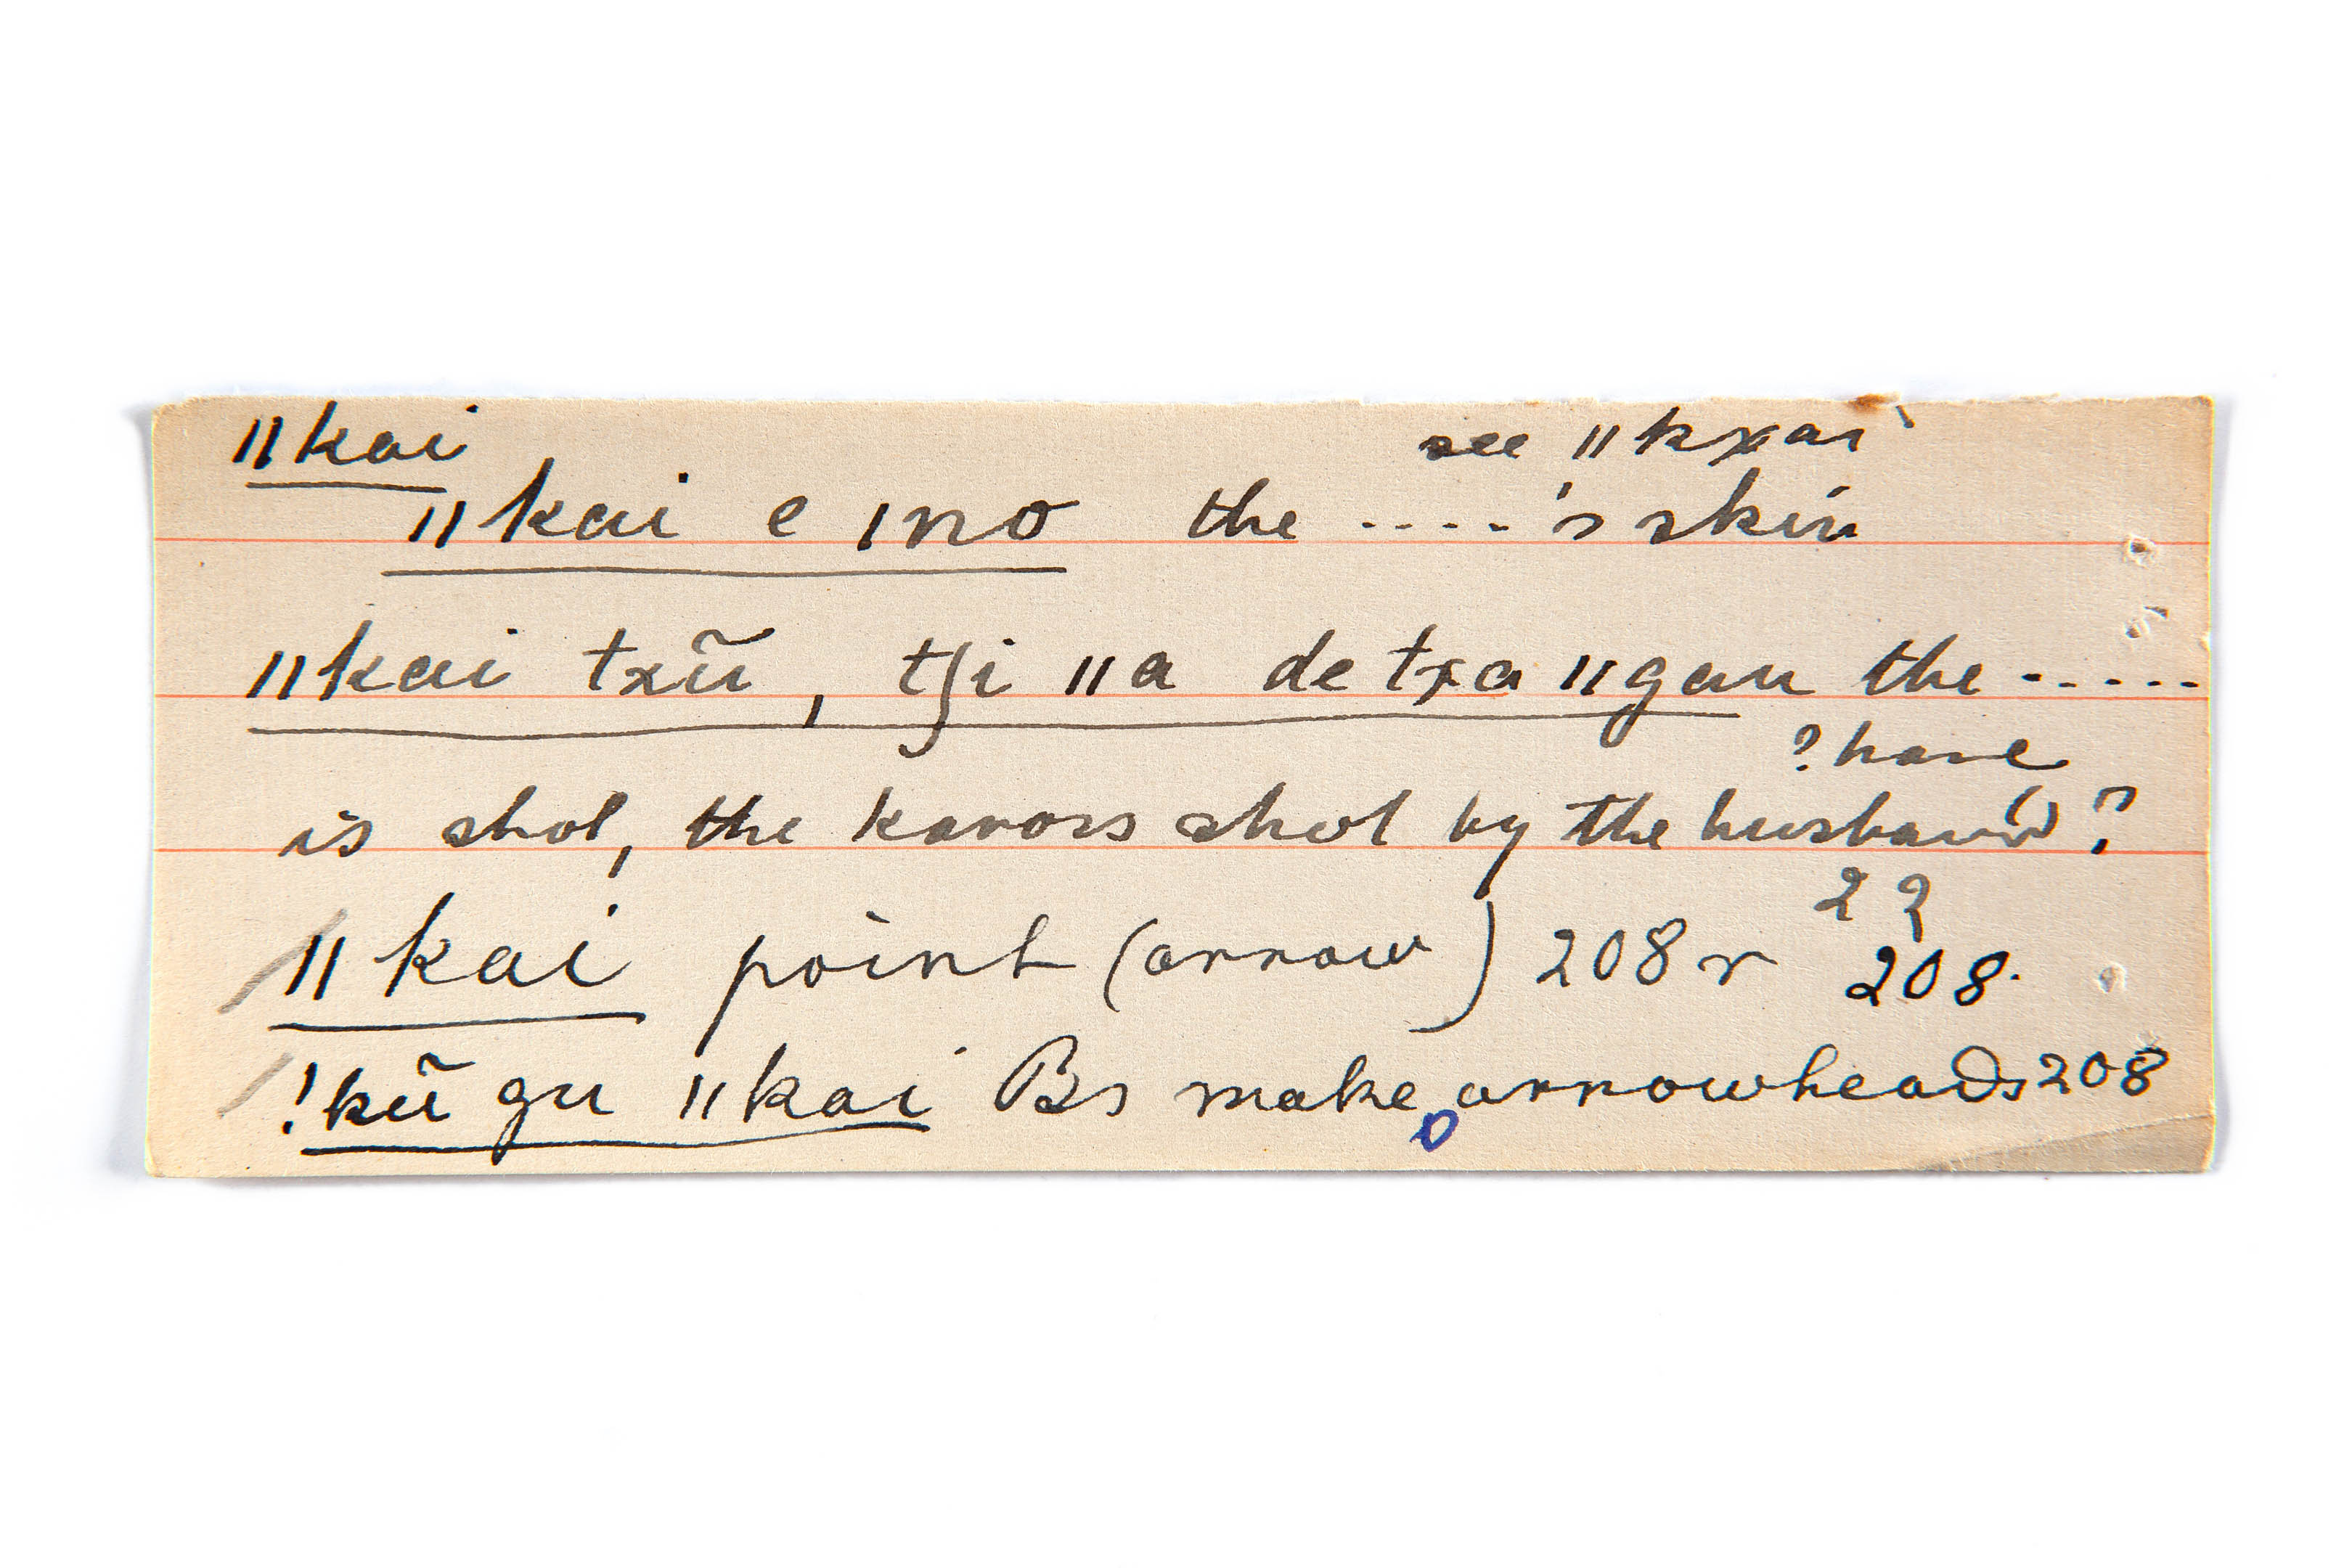 ǁkai see ǁkxai
ǁkai e ǀno the ....'s skin
ǁkai txũ, tʃi ǁa de txa ǁgau the .....
? hare
is shot, the kaross shot by the husband ?
22
ǁkai point (arrow) 208 r 208.
!kũ gu ǁkai Bs make arrowheads 208